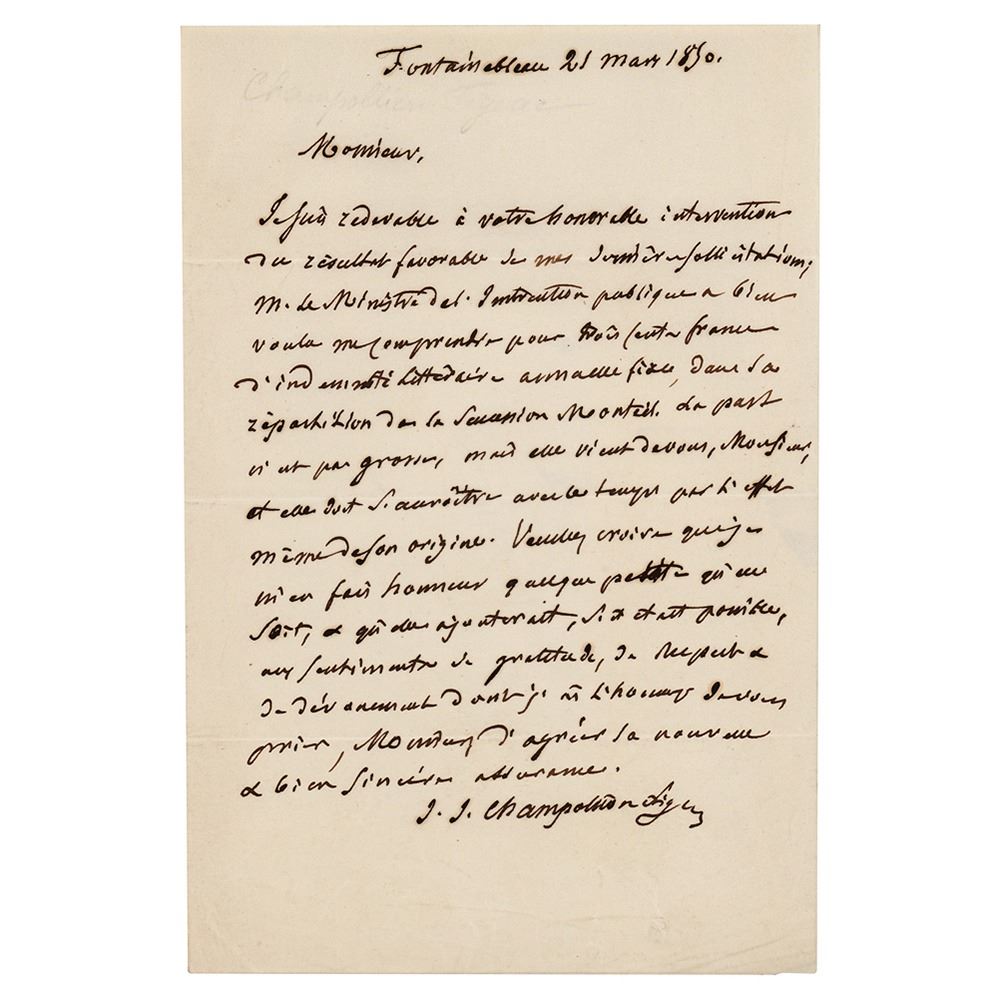 Fontainebleau 21 mars 1850.
Champollion Figeac
Monsieur,
Je suis redevable à votre honorable intervention
du résultat favorable de mes dernières sollicitations;
M. le Ministre de l'Instruction publique a bien
voulu me comprendre pour trois cents francs
d'indemnité littéraire annuelle fixe, dans la
répartition de la Succession Monteil. La part
n'est pas grosse, mais elle vient de vous, Monsieur,
et elle doit s'accroître avec le temps par l'effet
même de son origine. Veuillez croire que je
m'en fais honneur quelque petite qu'elle
soit, & qu'elle ajouterait, s'il était possible,
aux sentiments de gratitude, de respect &
de dévouement dont j'ai l'honneur de vous
prier, Monsieur, d'agréer la nouvelle
& bien sincère assurance.
J. J. Champollion Figeac